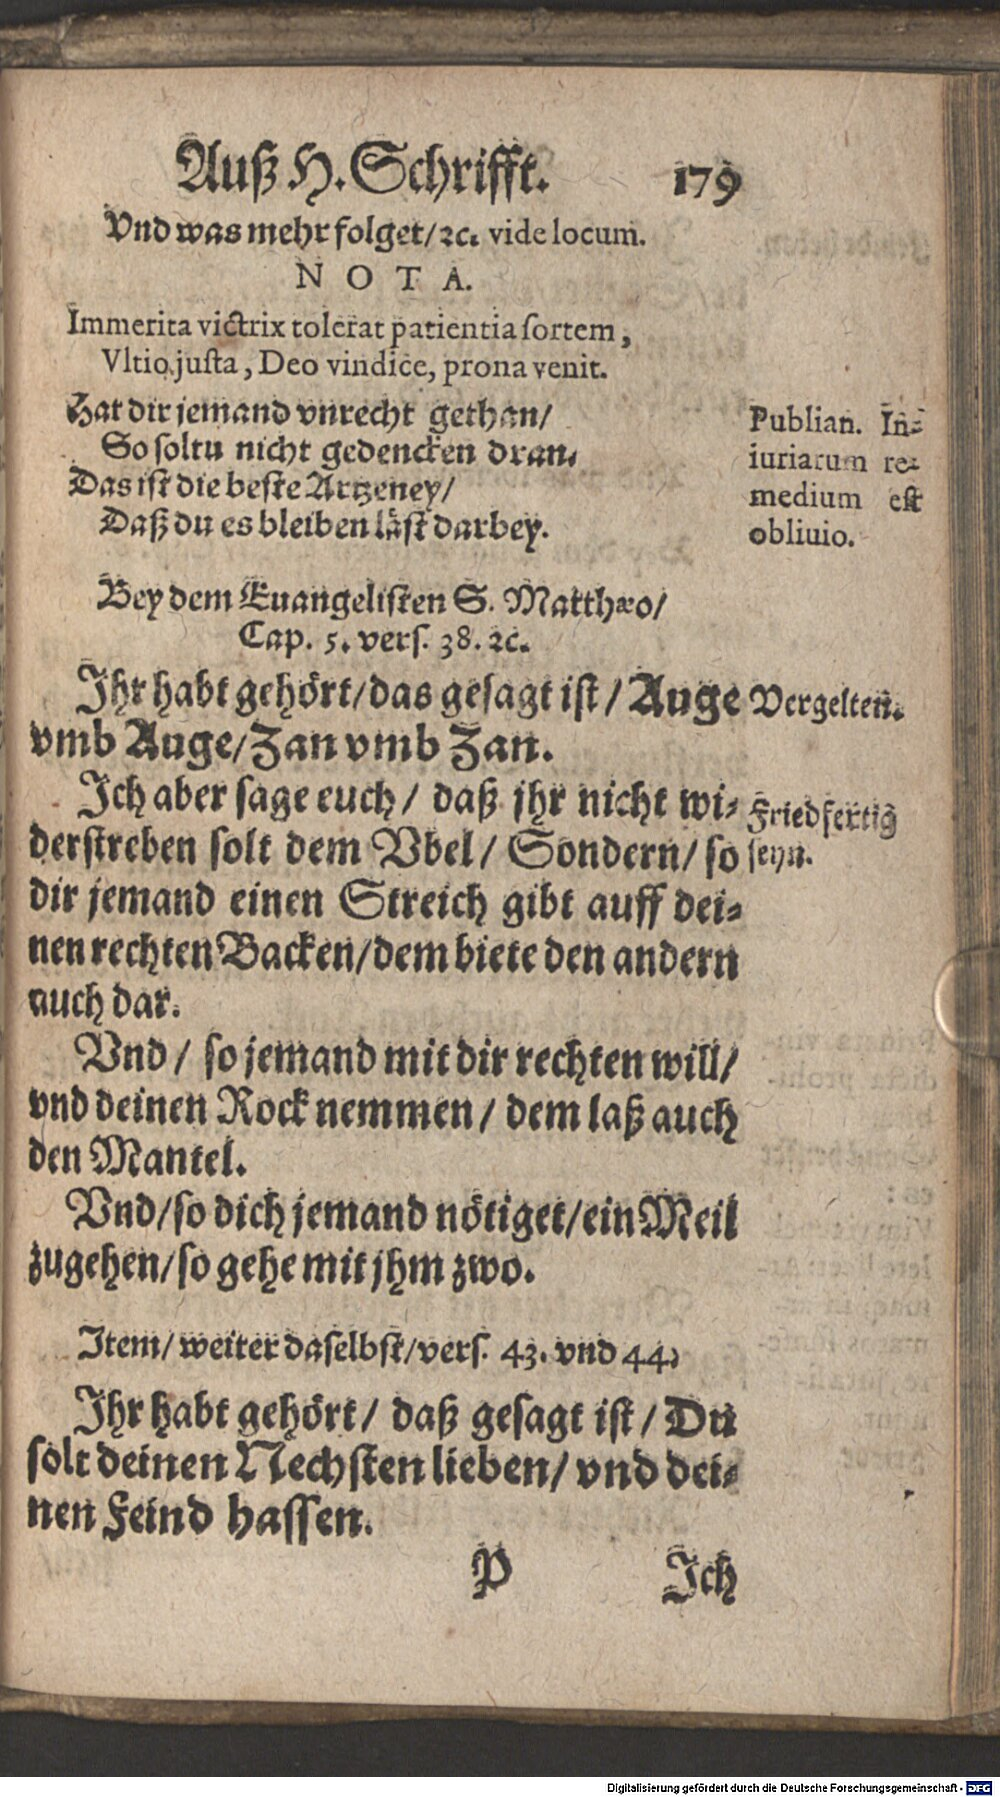 Auß H. Schrifft. 179
Vnd was mehr folget/ ꝛc. vide locum.
N O T A.
Immerita victrix tolerat patientia ſortem,
Vltio juſta, Deo vindice, prona venit.
Hat dir jemand vnrecht gethan/
So ſoltu nicht gedencken dran.
Das iſt die beſte Artzeney/
Daß du es bleiben läſt darbey.
Publian. In-
iuriarum re-
medium eſt
obliuio.
Bey dem Euangeliſten S. Matthæo/
Cap. 5. verſ. 38. ꝛc.
Ihr habt gehört/ das geſagt iſt/ Auge
vmb Auge/ Zan vmb Zan.
Vergelten.
Ich aber ſage euch/ daß jhr nicht wi-
derſtreben ſolt dem Vbel/ Sondern/ ſo
dir jemand einen Streich gibt auff dei-
nen rechten Backen/ dem biete den andern
auch dar.
Friedfertig
ſeyn.
Vnd/ ſo jemand mit dir rechten will/
vnd deinen Rock nemmen/ dem laß auch
den Mantel.
Vnd/ ſo dich jemand nötiget/ ein Meil
zugehen/ ſo gehe mit jhm zwo.
Item/ weiter daſelbſt/ verſ. 43. vnd 44.
Ihr habt gehört/ daß geſagt iſt/ Du
ſolt deinen Nechſten lieben/ vnd dei-
nen Feind haſſen.
P Ich
Digitalisierung gefördert durch die Deutsche Forschungsgemeinschaft - DFG